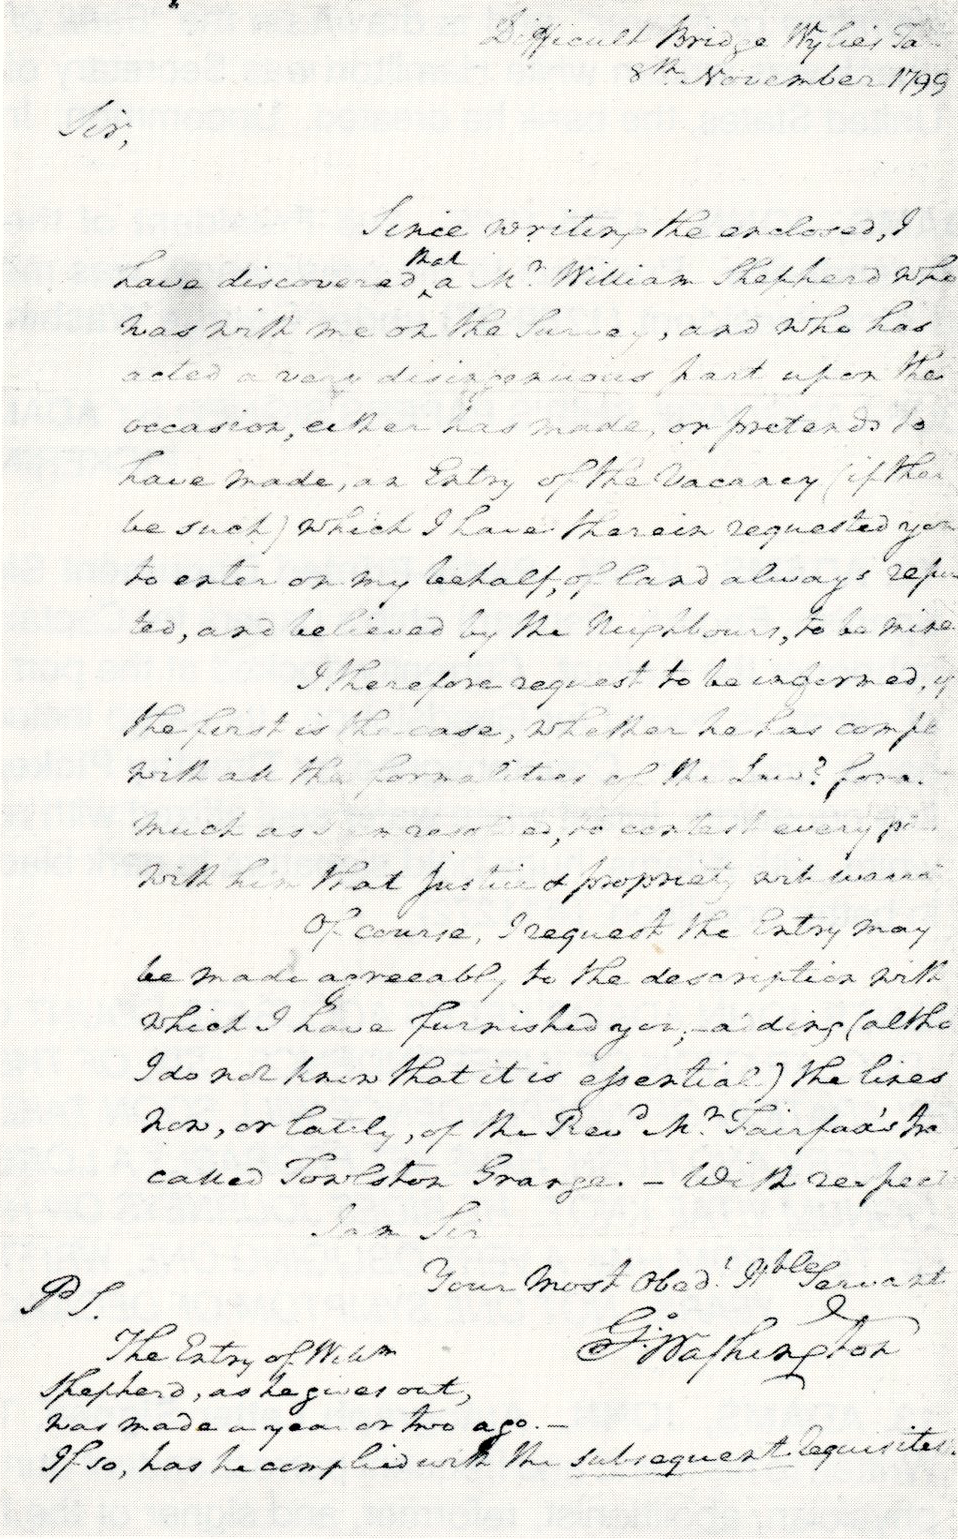 Difficult Bridge Wylie's Ta
8th November 1799
Sir,
Since writing the enclosed, I
that
have discovered ‸ a Mr. William Shepherd who
was with me on the Survey, and who has
acted a very disingenuous part upon the
occasion, either has made, or pretends to
have made, an Entry of the Vacancy (if ther
be such) which I have therein requested you
to enter on my behalf, of land always repu
ted, and believed by the Neighbours, to be mine
I therefore request to be informed, if
the first is the case, whether he has compl
with all the formalities of the Law? foras
much as I am resolved, to contest every
with him that justice & propriety will
Of course, I request the Entry may
be made agreeably to the description with
which I have furnished you; aiding (altho
I do not know that it is essential) the lines
now, or lately, of the Revd. Mr. Fairfax's tra
called Towlston Grange. — With respect
I am Sir
Your Most Obedt. Hble Servant
Go: Washington
PS.
The Entry of Willm
Shepherd, as he gives out,
was made a year or two ago. —
If so, has he complied with the subsequent requisites.